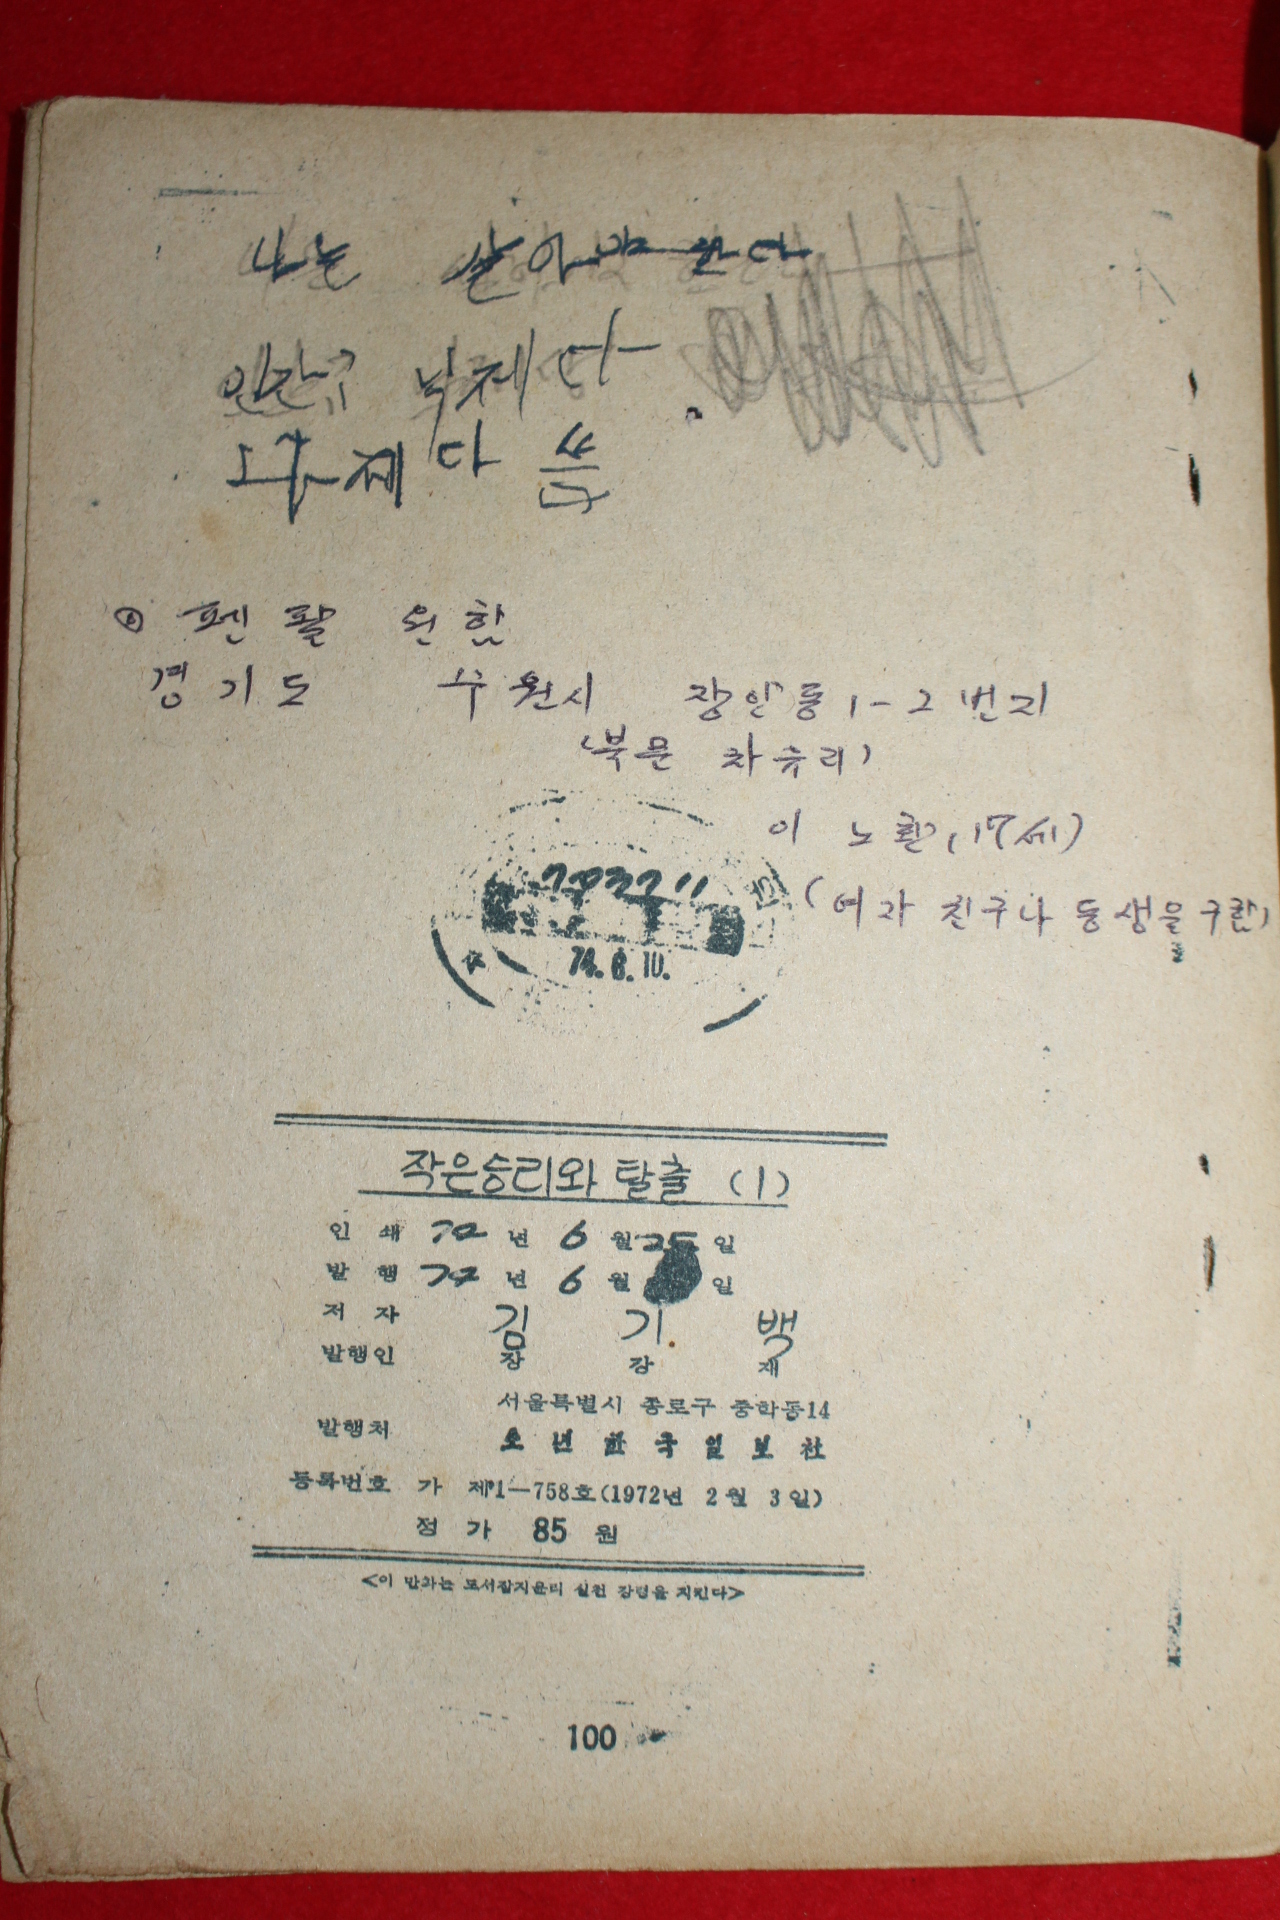 나는 살아야 한다
낙제다
다 씀
펜팔 원함
경기도 수원시 장안동 1-2번지
(북문 차유리)
이 노환 (17세)
(여자 친구나 동생을 구함)
74.6.10.
작은승리와 탈출 (1)
인쇄 72년 6월 25일
발행 72년 6월 일
저자 김기백
발행인 장강재
서울특별시 종로구 중학동14
발행처
소년한국일보社
등록번호 가 제1—758호(1972년 2월 3일)
정가 85 원
<이 만화는 도서잡지윤리 실천 강령을 지킨다>
100